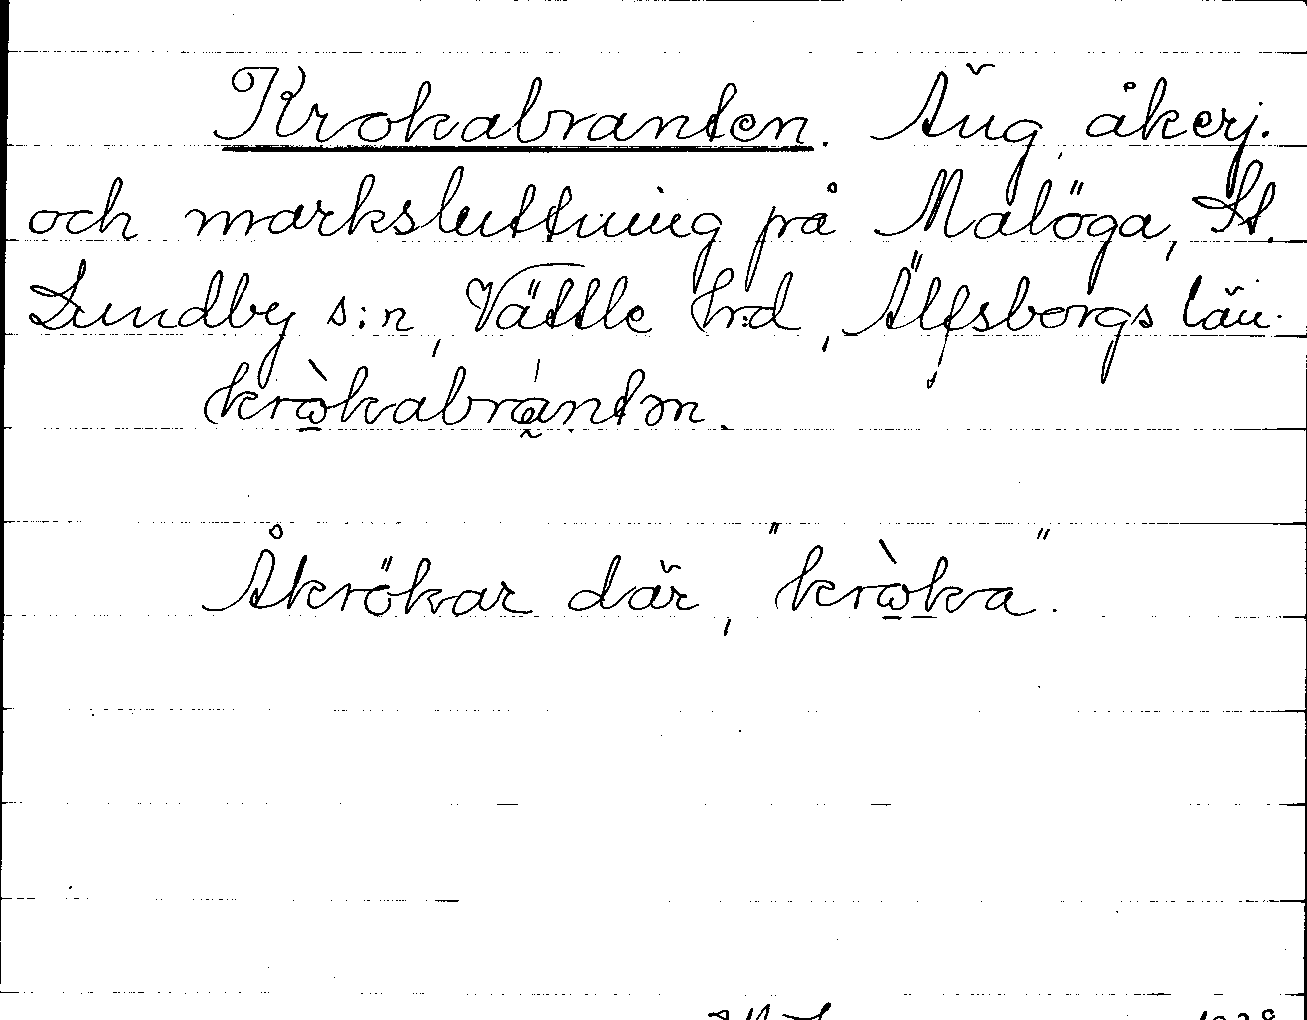 Krokabranten. Äng, åkerj.
och marksluttning på Malöga, St.
Lundby s:n, Vättle hrd, Älfsborgs län.
kròkabrántən.
Åkrökar där, "kròka".